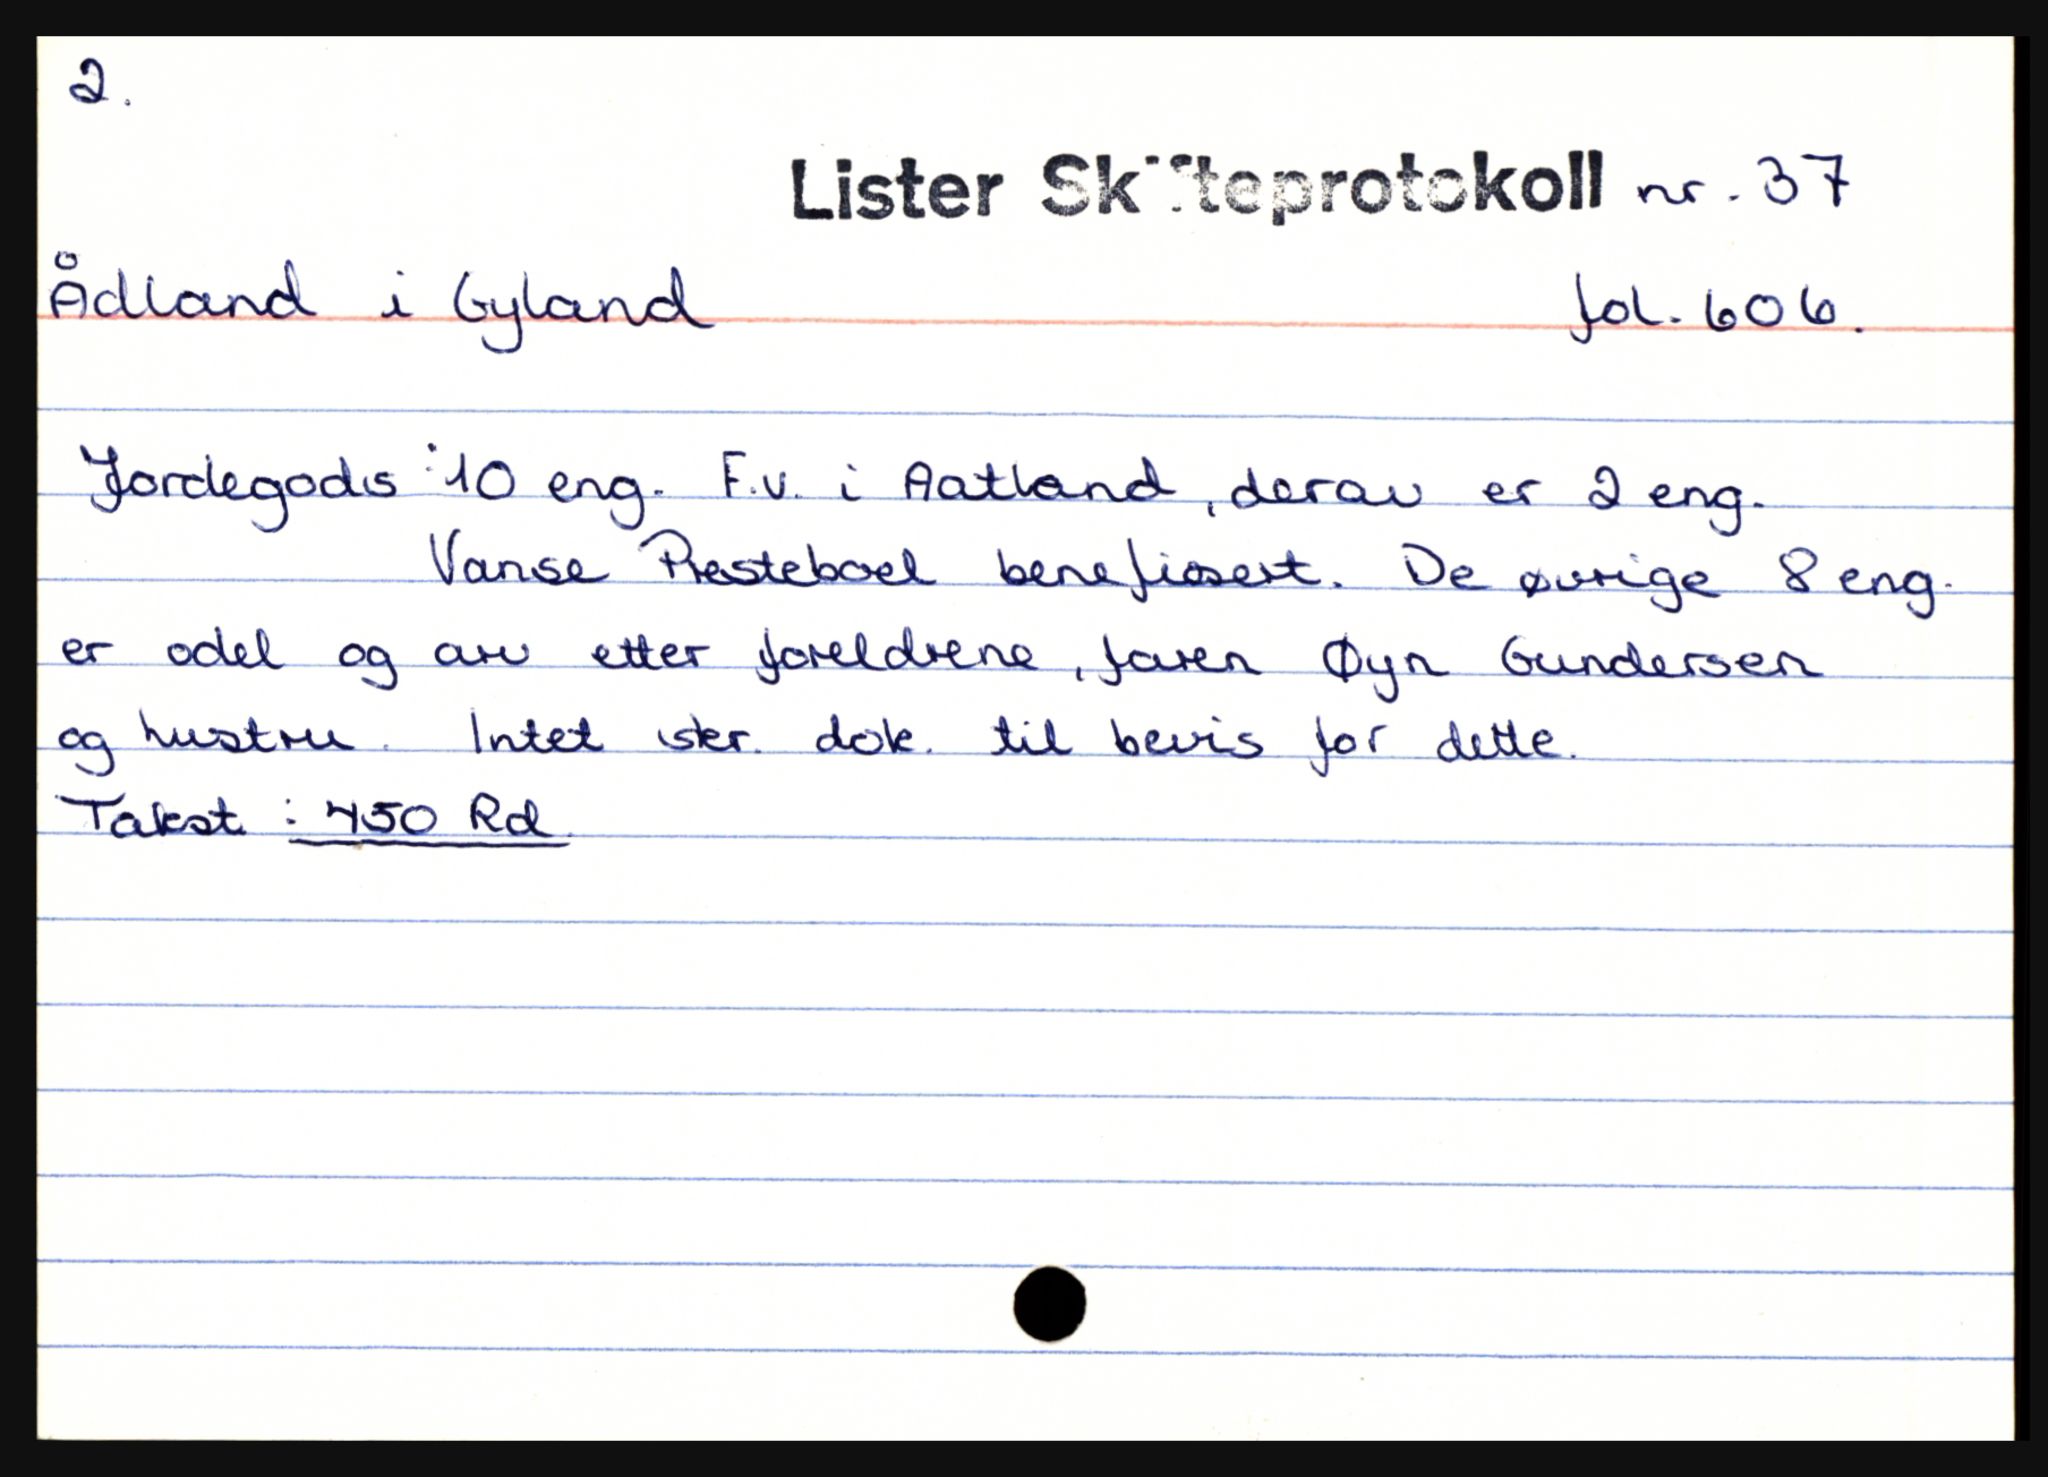 2.
Lister Skifteprotokoll nr. 37
Ådland i Gyland fol. 606.
Jordegods : 10 eng. F.v. i Aatland, derav er 2 eng.
Vanse Presteboel benefisert. De øvrige 8 eng.
er odel og arv etter foreldrene, faren Øyn Gundersen
og hustru. Intet skr. dok. til bevis for dette.
Takst : 450 Rd